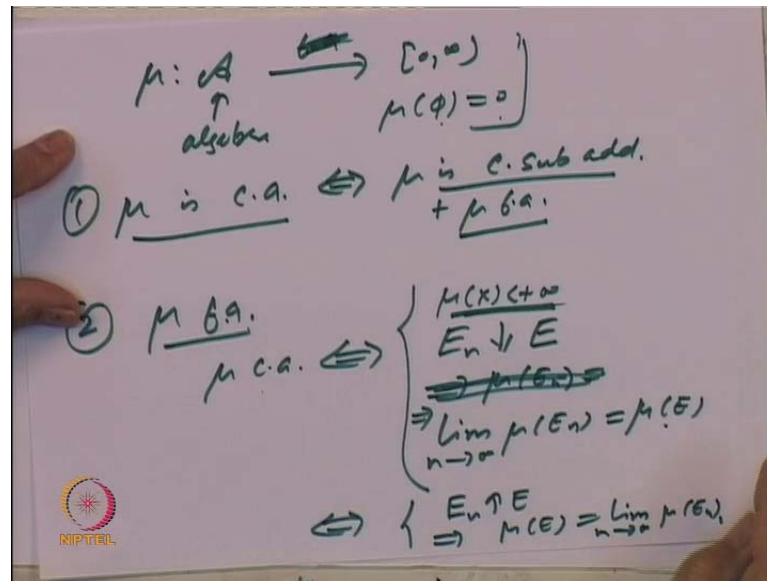 μ: 𝒜 ⟶ [0, ∞)
↑
algebra
μ(φ) = 0
① μ is c.a. ⇔ μ is c. sub add.
+ μ f.a.
② μ f.a.
μ(X) < +∞
μ c.a. ⇔ { E_n ↓ E
⇒ lim n→∞ μ(E_n) = μ(E)
⇔ { E_n ↑ E
⇒ μ(E) = lim n→∞ μ(E_n),
NPTEL